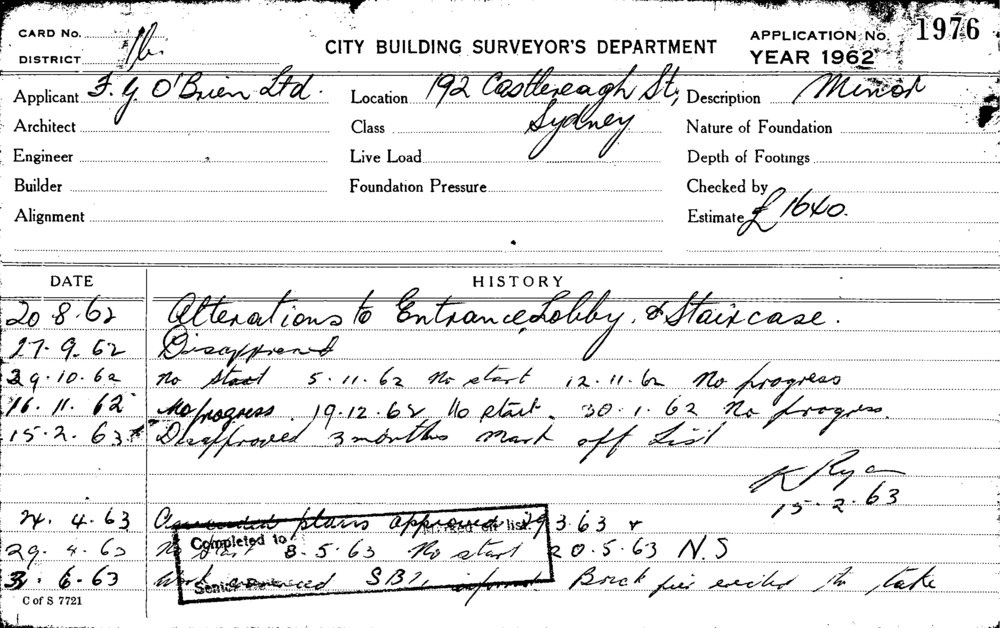 CARD No.
DISTRICT
CITY BUILDING SURVEYOR'S DEPARTMENT
APPLICATION No. 1976
YEAR 1962
Applicant F. G O'Brien Ltd. Location 192 Castlereagh St, Description Minor
Architect Class Sydney Nature of Foundation
Engineer Live Load Depth of Footings
Builder Foundation Pressure Checked by
Alignment Estimate £ 1640.
DATE HISTORY
20.8.62 Alterations to Entrance, Lobby, & Staircase.
27.9.62 Disapproved
29.10.62 No start 5.11.62 No start 12.11.62 No progress
16.11.62 No progress. 19.12.62 No start. 30.1.62 No progress.
15.2.63 Disapproved 3 months mark off List
K Ryan
15.2.63
24.4.63 plans approved 29 3.63
29.4.63 No start 8.5.63 No start 20.5.63 N.S
3.6.63 Work Brick pier to take
Completed to
Senior
C of S 7721